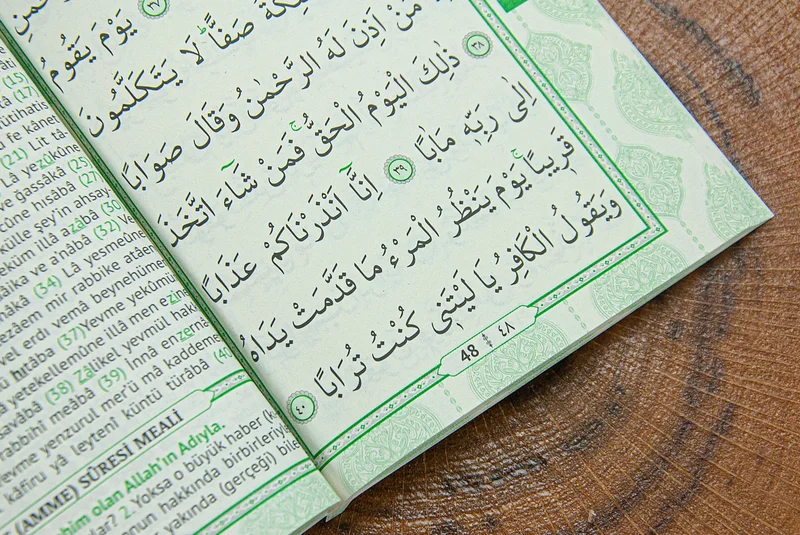 ﴿٣٧﴾ يَوْمَ يَقُومُ
صَفًّاۜ لَا يَتَكَلَّمُونَ
مَنْ اَذِنَ لَهُ الرَّحْمٰنُ وَقَالَ صَوَابًا
﴿٣٨﴾ ذٰلِكَ الْيَوْمُ الْحَقُّۚ فَمَنْ شَٓاءَ اتَّخَذَ
اِلٰى رَبِّه۪ مَاٰبًا ﴿٣٩﴾ اِنَّٓا اَنْذَرْنَاكُمْ عَذَابًا
قَر۪يبًاۚ يَوْمَ يَنْظُرُ الْمَرْءُ مَا قَدَّمَتْ يَدَاهُ
وَيَقُولُ الْكَافِرُ يَا لَيْتَن۪ى كُنْتُ تُرَابًا ﴿٤٠﴾
48 ٤٨
(15)
(17)
ütihatis
fe kânet
(21) Lit tâ-
Lâ yezûkûne
ve ğassâkâ (25)
hısâbâ (27)
külle şey'in ahsay-
illâ azâbâ (30)
ve a'nâbâ (32) Ve
(34) Lâ yesmeûne
mir rabbike atâen
vel erdı vemâ beynehümer
hıtâbâ (37) Yevme yekûmü
yetekellemûne illâ men ezine
savâbâ (38) Zâlikel yevmül hakk
rabbihî meâbâ (39) İnnâ enzerna
yevme yenzurul mer'ü mâ kaddeme
kâfiru yâ leytenî küntü türâbâ (40
(AMME) SÛRESİ MEÂLİ
him olan Allah'ın Adıyla.
2. Yoksa o büyük haber (k
onun hakkında birbirleriyle
yakında (gerçeği) bile